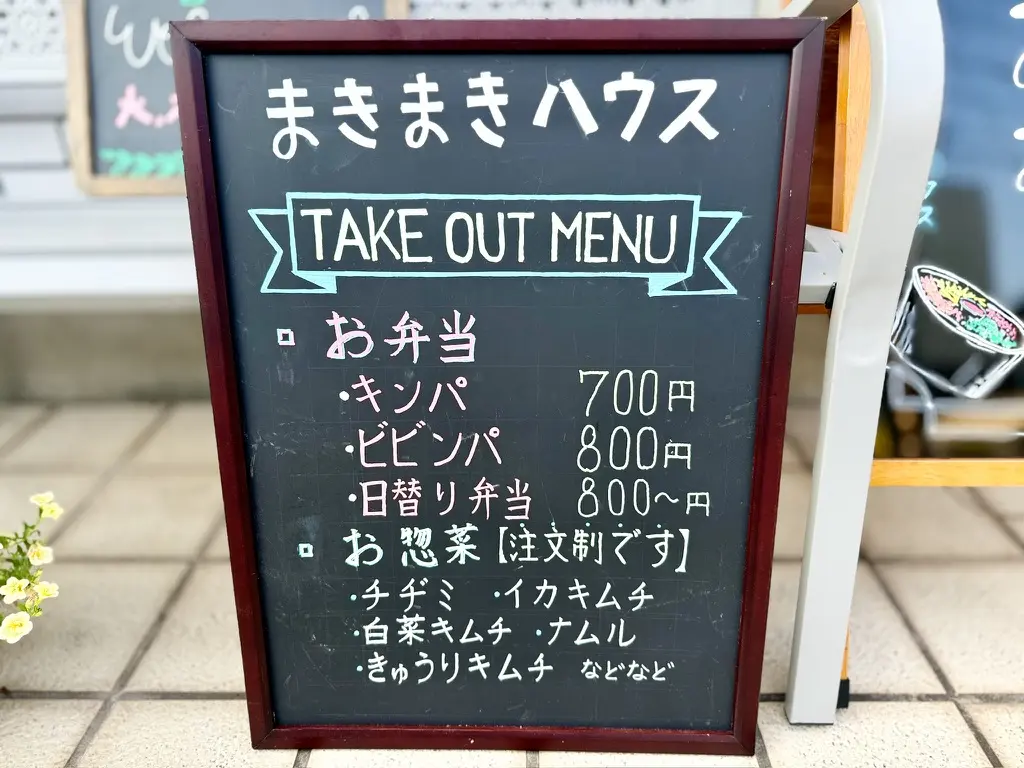 まきまきハウス
TAKE OUT MENU
お弁当
・キンパ 700円
・ビビンパ 800円
・日替り弁当 800〜円
お惣菜【注文制です】
・チヂミ ・イカキムチ
・白菜キムチ ・ナムル
・きゅうりキムチ などなど